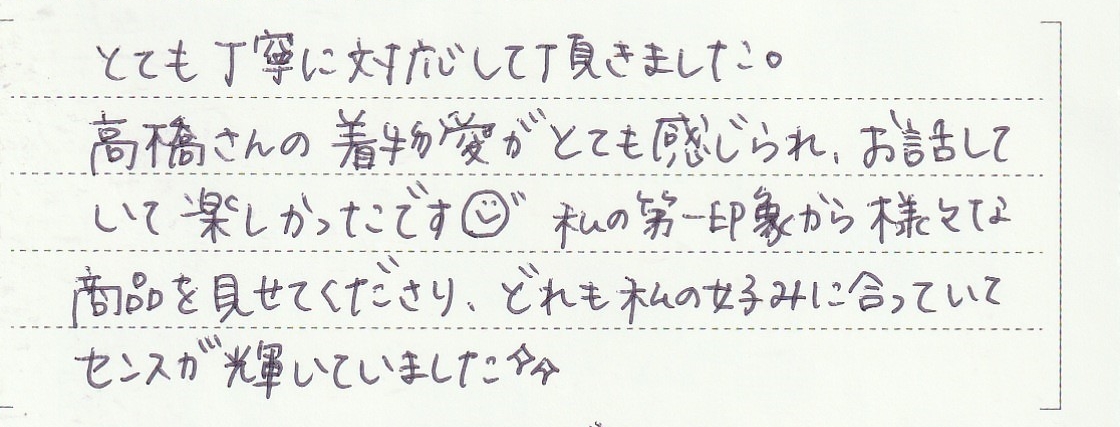 とても丁寧に対応して頂きました。
高橋さんの着物愛がとても感じられ、お話して
いて楽しかったです☺ 私の第一印象から様々な
商品を見せてくださり、どれも私の好みに合っていて
センスが輝いていました☆☆